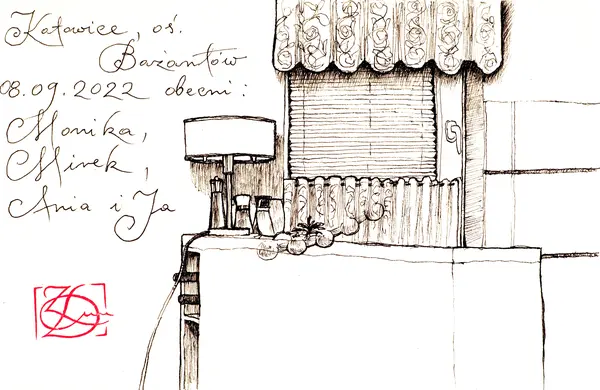 Katowice, oś.
Bażantów
08.09.2022 obecni:
Monika,
Mirek,
Ania i Ja